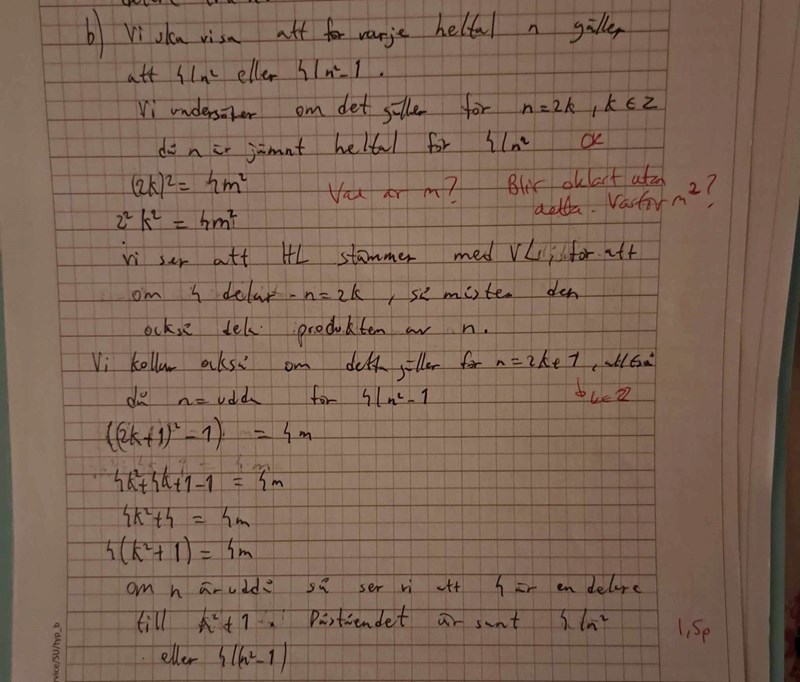 b) Vi ska visa att för varje heltal n gäller
att 4|n² eller 4|n²-1.
Vi undersöker om det gäller för n=2k, k∈Z
då n är jämnt heltal för 4|n² OK
(2k)²=4m² Vad är m? Blir oklart utan
detta. Varför m²?
2²k²=4m²
Vi ser att HL stämmer med VL, för att
om 4 delar n=2k, så måste den
också dela produkten av n.
Vi kollar också om detta gäller för n=2k+1, alltså
då n=udda för 4|n²-1 k∈Z
((2k+1)²-1) = 4m
4k²+4k+1-1 = 4m
4k²+4 = 4m
4(k²+1) = 4m
om n är udda så ser vi att 4 är en delare
till k²+1. Påståendet är sant 4|n²
eller 4|(n²-1)
1,5p